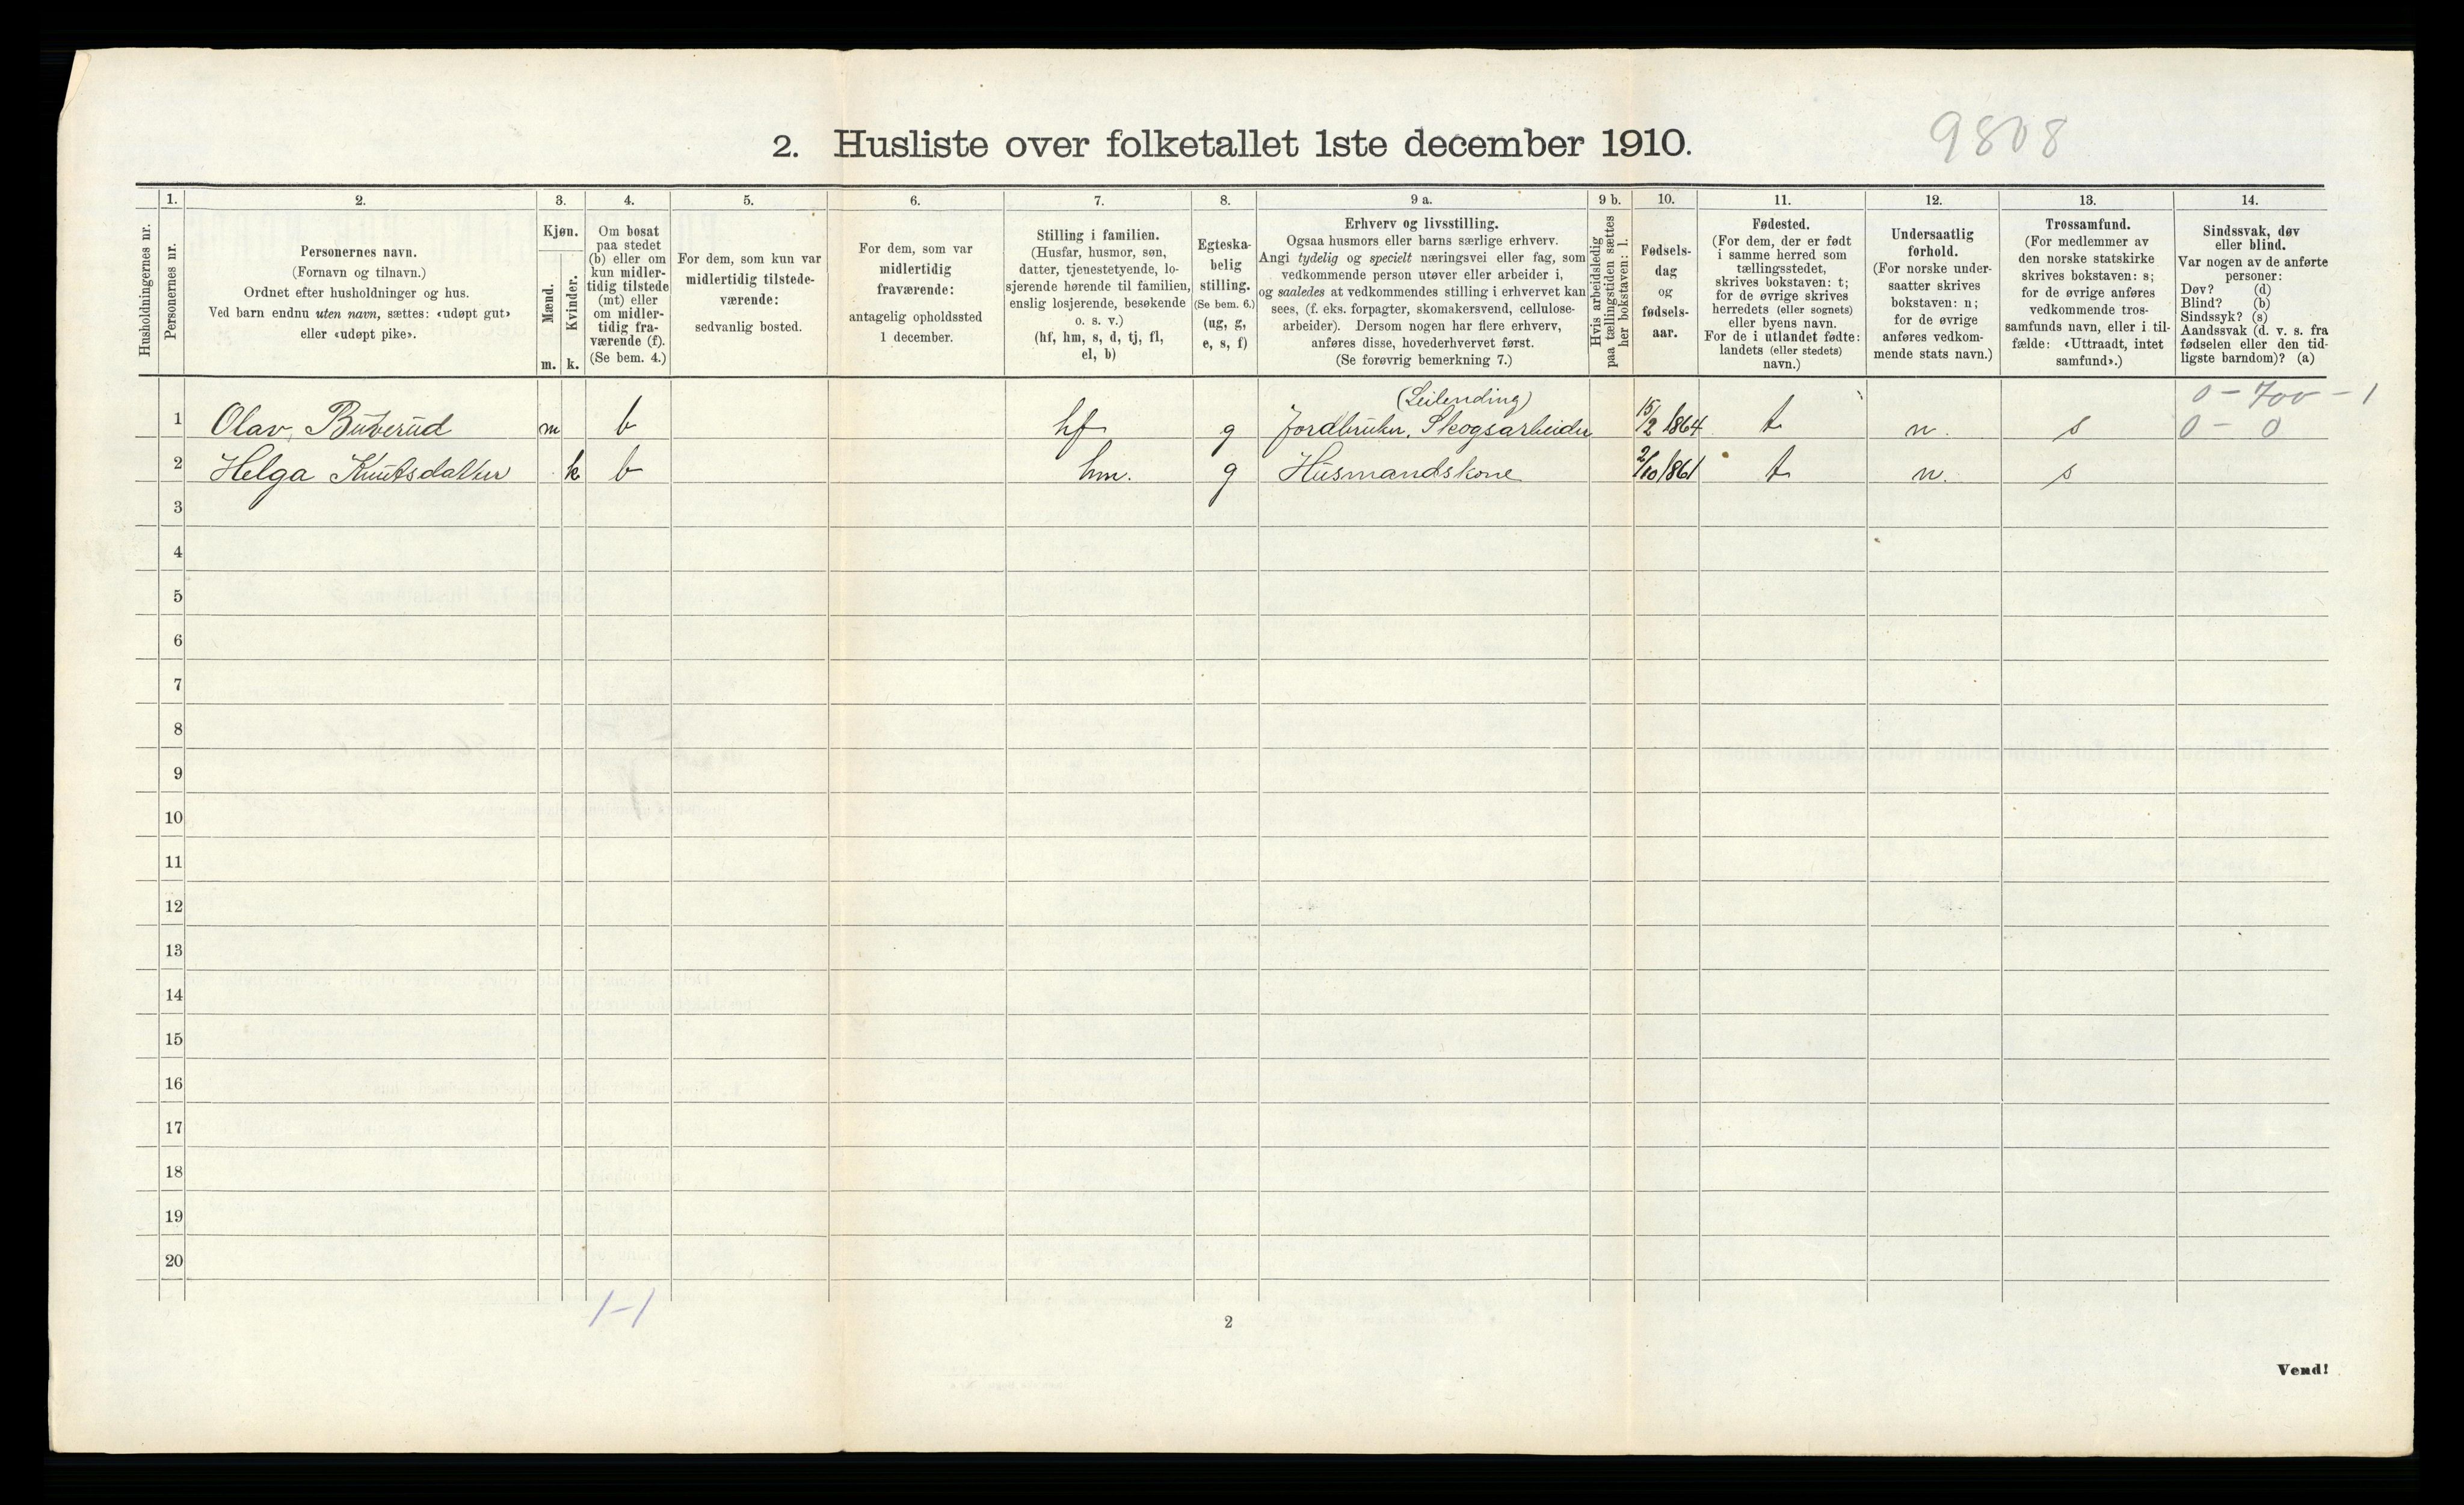 2. Husliste over folketallet 1ste december 1910.
9808
Husholdningernes nr.
1.
Personernes nr.
2.
Personernes navn.
(Fornavn og tilnavn.)
Ordnet efter husholdninger og hus.
Ved barn endnu uten navn, sættes: «udøpt gut»
eller «udøpt pike».
3.
Kjøn.
Mænd.
m.
Kvinder.
k.
4.
Om bosat
paa stedet
(b) eller om
kun midler-
tidig tilstede
(mt) eller
om midler-
tidig fra-
værende (f).
(Se bem. 4.)
5.
For dem, som kun var
midlertidig tilstede-
værende:
sedvanlig bosted.
6.
For dem, som var
midlertidig
fraværende:
antagelig opholdssted
1 december.
7.
Stilling i familien.
(Husfar, husmor, søn,
datter, tjenestetyende, lo-
sjerende hørende til familien,
enslig losjerende, besøkende
o. s. v.)
(hf, hm, s, d, tj, fl,
el, b)
8.
Egteska-
belig
stilling.
(Se bem. 6.)
(ug, g,
e, s, f)
9 a.
Erhverv og livsstilling.
Ogsaa husmors eller barns særlige erhverv.
Angi tydelig og specielt næringsvei eller fag, som
vedkommende person utøver eller arbeider i,
og saaledes at vedkommendes stilling i erhvervet kan
sees, (f. eks. forpagter, skomakersvend, cellulose-
arbeider). Dersom nogen har flere erhverv,
anføres disse, hovederhvervet først.
(Se forøvrig bemerkning 7.)
9 b.
Hvis arbeidsledig
paa tællingstiden sættes
her bokstaven: l.
10.
Fødsels-
dag
og
fødsels-
aar.
11.
Fødested.
(For dem, der er født
i samme herred som
tællingsstedet,
skrives bokstaven: t;
for de øvrige skrives
herredets (eller sognets)
eller byens navn.
For de i utlandet fødte:
landets (eller stedets)
navn.)
12.
Undersaatlig
forhold.
(For norske under-
saatter skrives
bokstaven: n;
for de øvrige
anføres vedkom-
mende stats navn.)
13.
Trossamfund.
(For medlemmer av
den norske statskirke
skrives bokstaven: s;
for de øvrige anføres
vedkommende tros-
samfunds navn, eller i til-
fælde: «Uttraadt, intet
samfund».)
14.
Sindssvak, døv
eller blind.
Var nogen av de anførte
personer:
Døv? (d)
Blind? (b)
Sindssyk? (s)
Aandssvak (d. v. s. fra
fødselen eller den tid-
ligste barndom)? (a)
(Leilending) 0 - 700 - 1
1 Olav Buverud m b hf g Jordbruker, Skogsarbeider 15/2 1864 t n. s 0 - 0
2 Helga Knutsdatter k b hm. g Husmandskone 2/10 1861 t n. s
3
4
5
6
7
8
9
10
11
12
13
14
15
16
17
18
19
20
1-1
2
Vend!